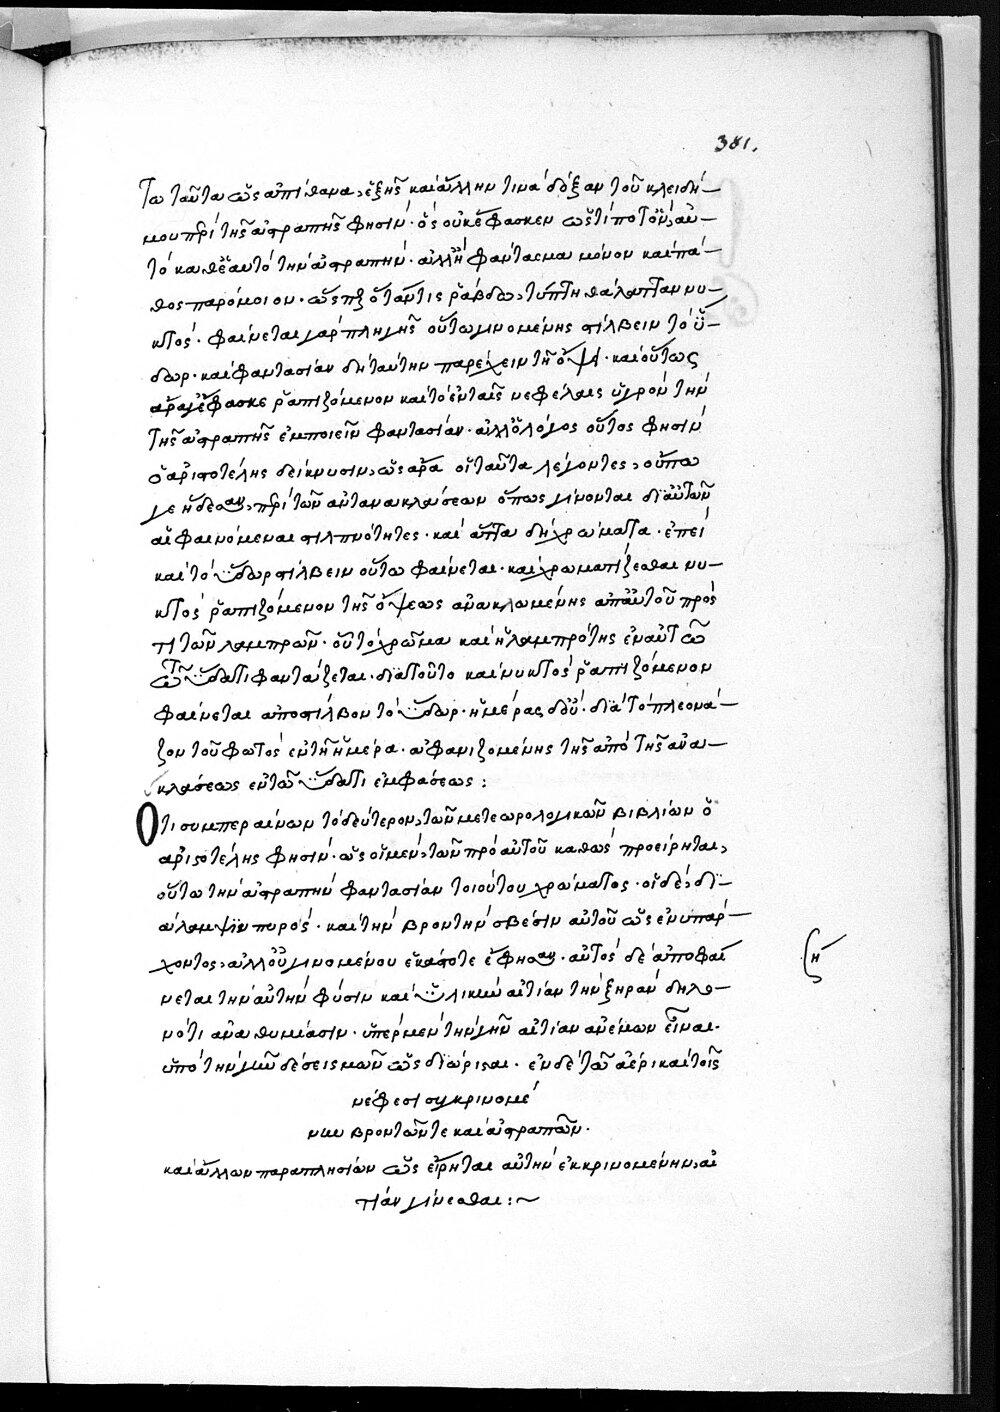 381.
τω ταῦτα ὡς ἀπίθανα, ἑξῆς καὶ ἄλλην τινὰ δόξαν τοῦ κλειδή-
μου περὶ τῆς ἀστραπῆς φησίν· ὃς οὐκ ἔφασκεν ὥς τί ποτ' ὂν αὐ-
τὸ καθ' ἑαυτὸ τὴν ἀστραπήν· ἀλλ' ἢ φάντασμα μόνον καὶ πά-
θος παρόμοιον· ὥσπερ ὅταν τις ῥάβδω, τύπτη θάλατταν νυ-
κτός· φαίνεται γὰρ πληγῆς οὕτω γινομένης στίλβειν τὸ ὕ-
δωρ· καὶ φαντασίαν δὴ ταύτην παρέχειν τῆ ὄψει· καὶ οὕτως
ἄρα γ' ἔφασκε ῥαπιζόμενον καὶ τὸ ἐν ταῖς νεφέλαις ὑγρὸν τὴν
τῆς ἀστραπῆς ἐμποιεῖν φαντασίαν· ἀλλ' ὁ λόγος οὗτος φησὶν
ὁ ἀριστοτέλης δείκνυσιν, ὡς ἄρα οἱ ταῦτα λέγοντες, οὔπω
γε ἤδεσαν, περὶ τῶν ἀντανακλάσεων ὅπως γίνονται δι' αὐτῶν
αἱ φαινόμεναι στιλπνότητες· καὶ ἄττα δὴ χρώματα· ἐπεὶ
καὶ τὸ ὕδωρ στίλβειν οὕτω φαίνεται· καὶ χρωματίζεσθαι νυ-
κτὸς ῥαπιζόμενον τῆς ὄψεως ἀνακλωμένης ἀπ' αὐτοῦ πρός
τι τῶν λαμπρῶν· οὗ τὸ χρῶμα καὶ ἡ λαμπρότης ἐν αὐτῶ
τῶ ὕδατι φαντάζεται· διὰ τοῦτο καὶ νυκτὸς ῥαπιζόμενον
φαίνεται ἀποστίλβον τὸ ὕδωρ· ἡμέρας δ' οὔ· διὰ τὸ πλεονά-
ζον τοῦ φωτὸς ἐν τῆ ἡμέρα· ἀφανιζομένης τῆς ἀπὸ τῆς ἀνα-
κλάσεως ἐν τῶ ὕδατι ἐμφάσεως:
Ὅτι συμπεραίνων τὸ δεύτερον, τῶν μετεωρολογικῶν βιβλίων ὁ
ἀριστοτέλης φησίν· ὡς οἱ μὲν, τῶν πρὸ αὐτοῦ καθὼς προείρηται,
οὕτω τὴν ἀστραπὴν φαντασίαν τοιούτου χρώματος· οἱ δὲ, δι-
άλαμψιν πυρός· καὶ τὴν βροντὴν σβέσιν αὐτοῦ ὡς ἐνυπάρ-
χοντος, ἀλλ' οὐ γινομένου ἑκάστοτε ἔφησαν· αὐτὸς δὲ ἀποφαί
νεται τὴν αὐτὴν φύσιν καὶ ὑλικὴν αἰτίαν τὴν ξηρὰν δηλο-
νότι ἀναθυμίασιν· ὑπὲρ μὲν τὴν γῆν αἰτίαν ἀνέμων εἶναι·
ὑπὸ τὴν γῆν δὲ σεισμῶν ὡς διώρισται· ἐν δὲ τῶ ἀέρι καὶ τοῖς
νέφεσι συγκρινομέ
νην βροντῶν τε καὶ ἀστραπῶν·
καὶ ἄλλων παραπλησίων ὡς εἴρηται αὐτὴν ἐκκρινομένην, αἰ
τίαν γίνεσθαι:~